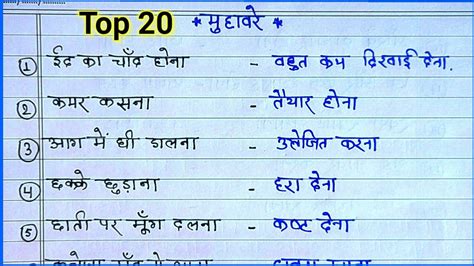 Top 20 * मुहावरे *
① ईद का चाँद होना - बहुत कम दिखाई देना.
② कमर कसना - तैयार होना
③ आग में घी डालना - उत्तेजित करना
④ छक्के छुड़ाना - हरा देना
⑤ छाती पर मूँग दलना - कष्ट देना